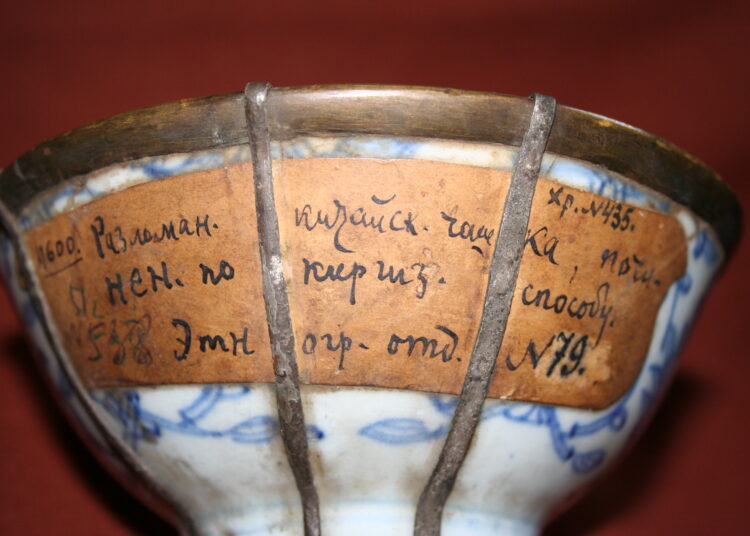 хр. №435.
1600. Разломан. китайск. чашка, почи-
нен. по киргиз. способу.
Этногр. отд. №79.